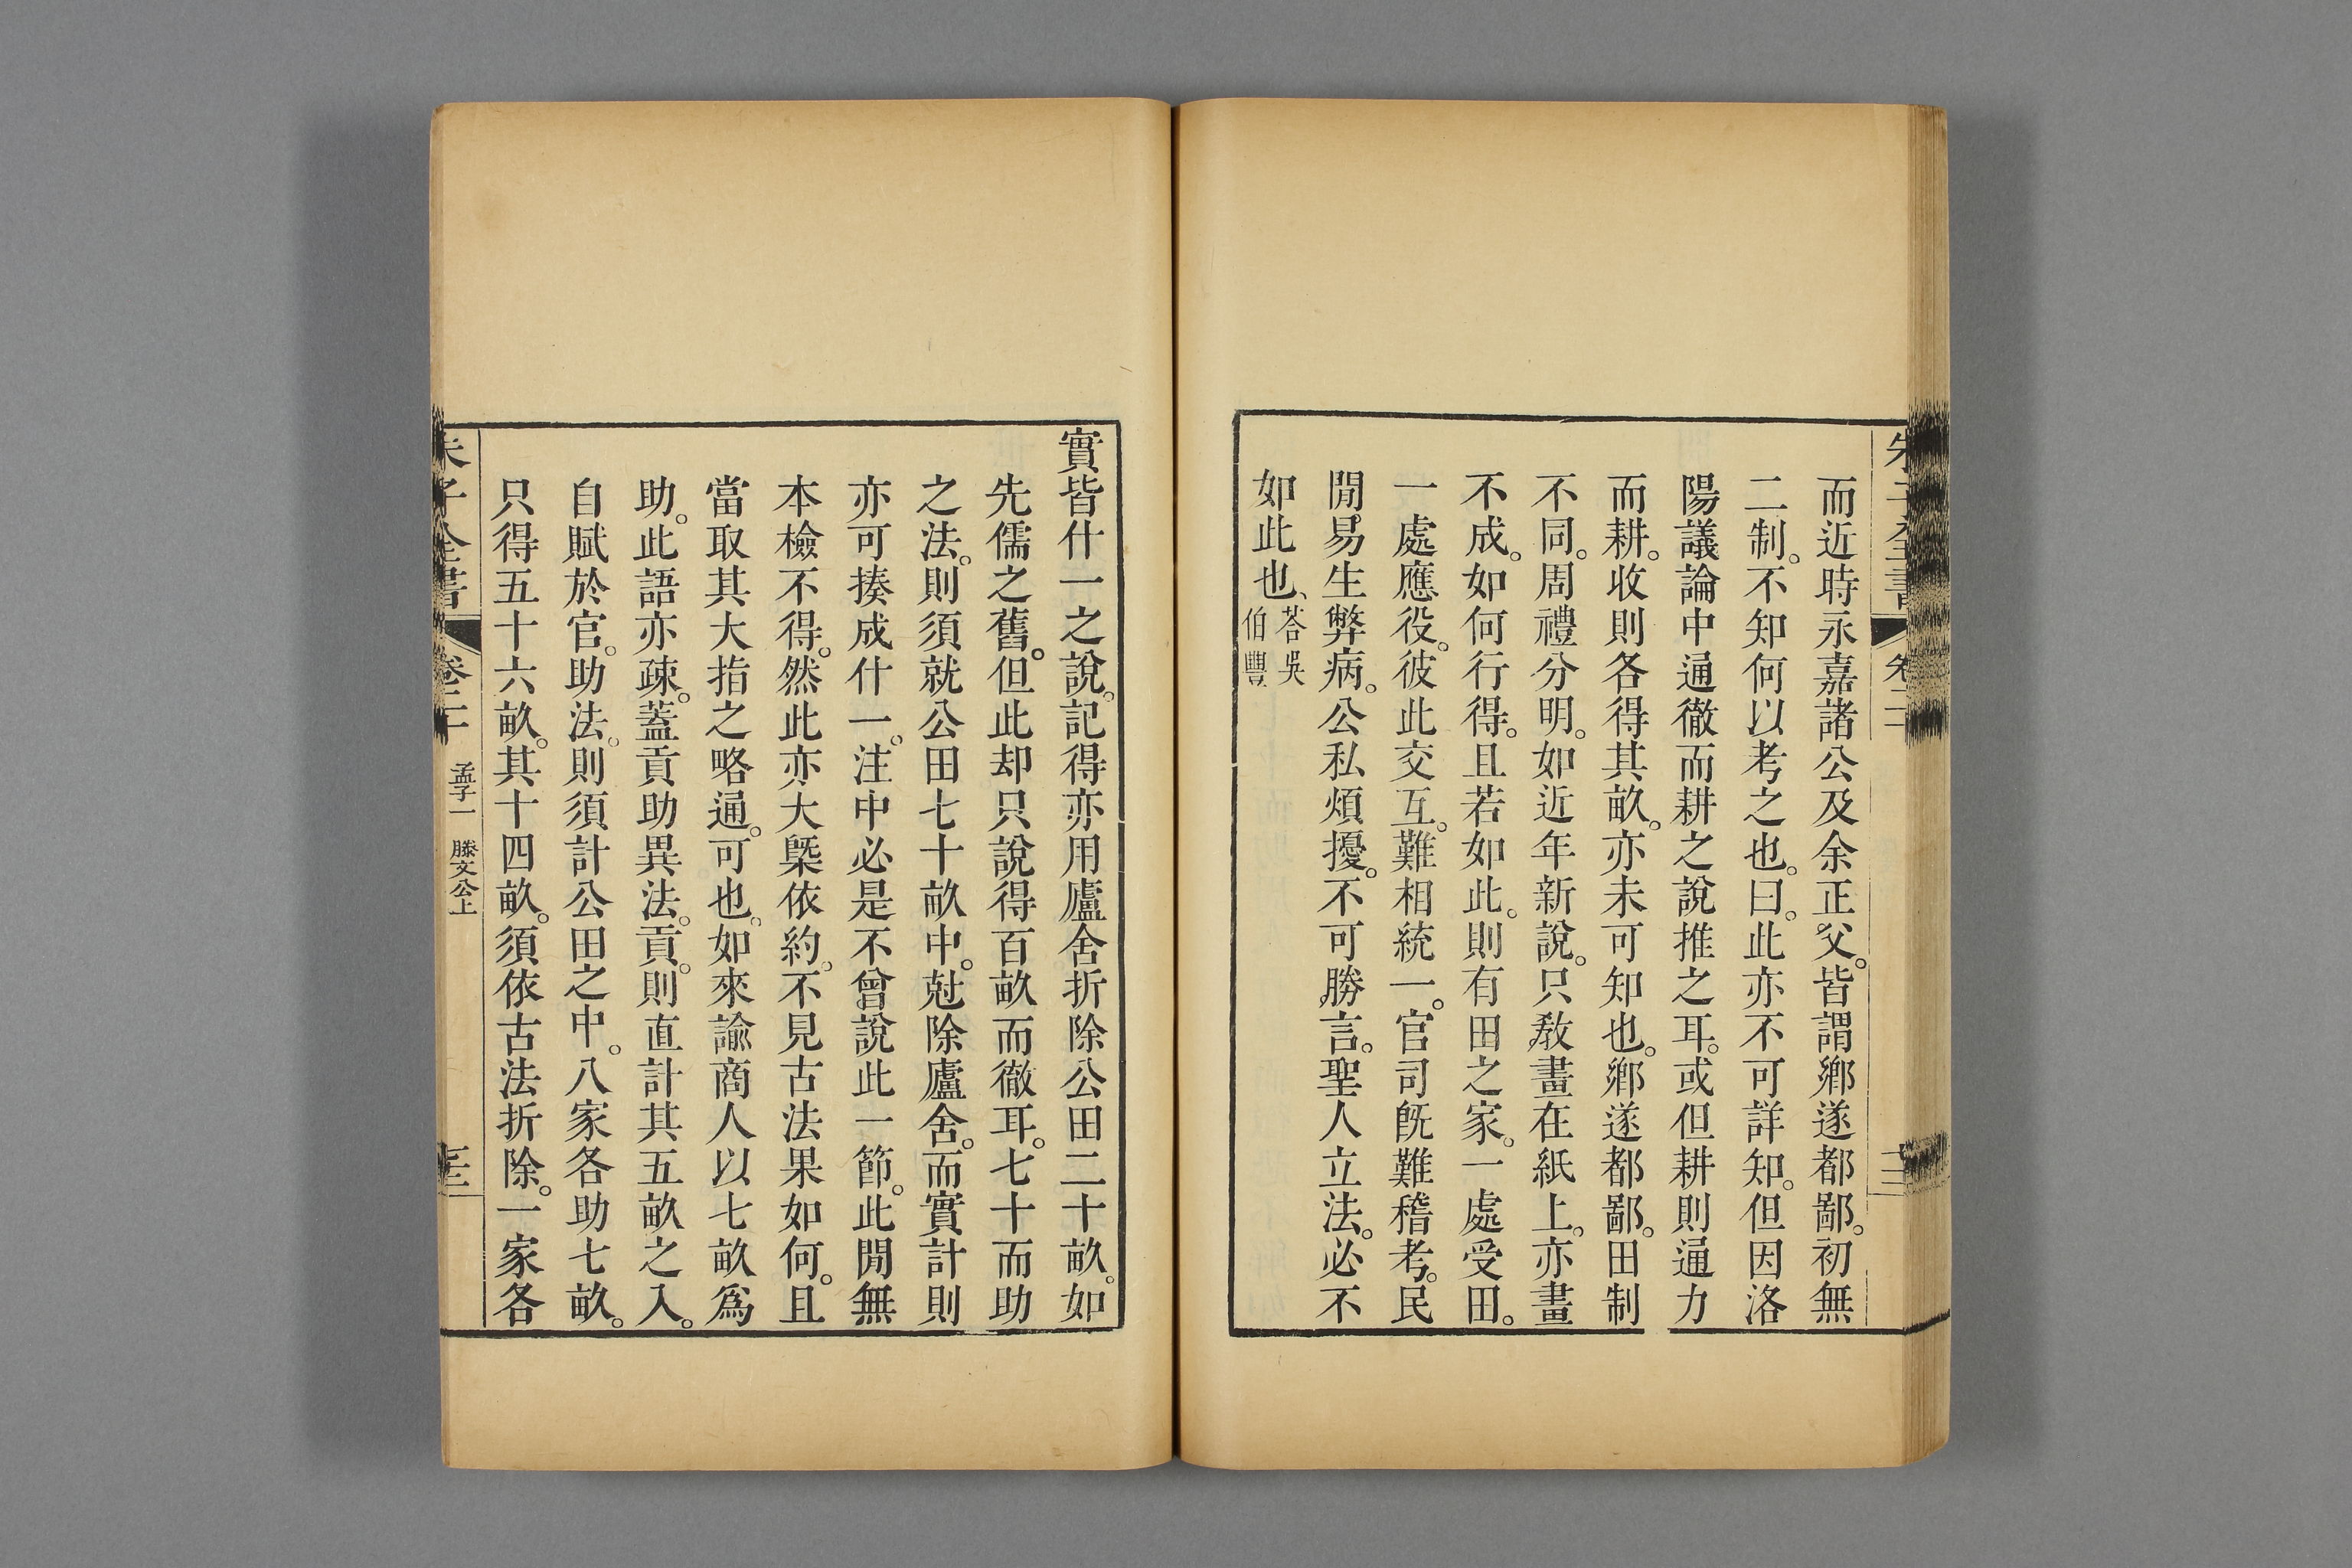 而近時永嘉諸公及余正父。皆謂鄉遂都鄙。初無
二制。不知何以考之也。曰。此亦不可詳知。但因洛
陽議論中通徹而耕之說推之耳。或但耕則通力
而耕。收則各得其畝。亦未可知也。鄉遂都鄙。田制
不同。周禮分明。如近年新說。只敎畫在紙上。亦畫
不成。如何行得。且若如此。則有田之家。一處受田。
一處應役。彼此交互。難相統一。官司旣難稽考。民
閒易生弊病。公私煩擾。不可勝言。聖人立法。必不
如此也、
荅吳
伯豐
實皆什一之說。記得亦用廬舍折除公田二十畝。如
先儒之舊。但此却只說得百畝而徹耳。七十而助
之法。則須就公田七十畝中。尅除廬舍。而實計則
亦可揍成什一。注中必是不曾說此一節。此閒無
本檢不得。然此亦大槩依約。不見古法果如何。且
當取其大指之略通。可也。如來諭商人以七畝爲
助。此語亦疎。蓋貢助異法。貢。則直計其五畝之入。
自賦於官。助法。則須計公田之中。八家各助七畝。
只得五十六畝。其十四畝。須依古法折除。一家各
朱子全書
卷二十
孟子一 滕文公上